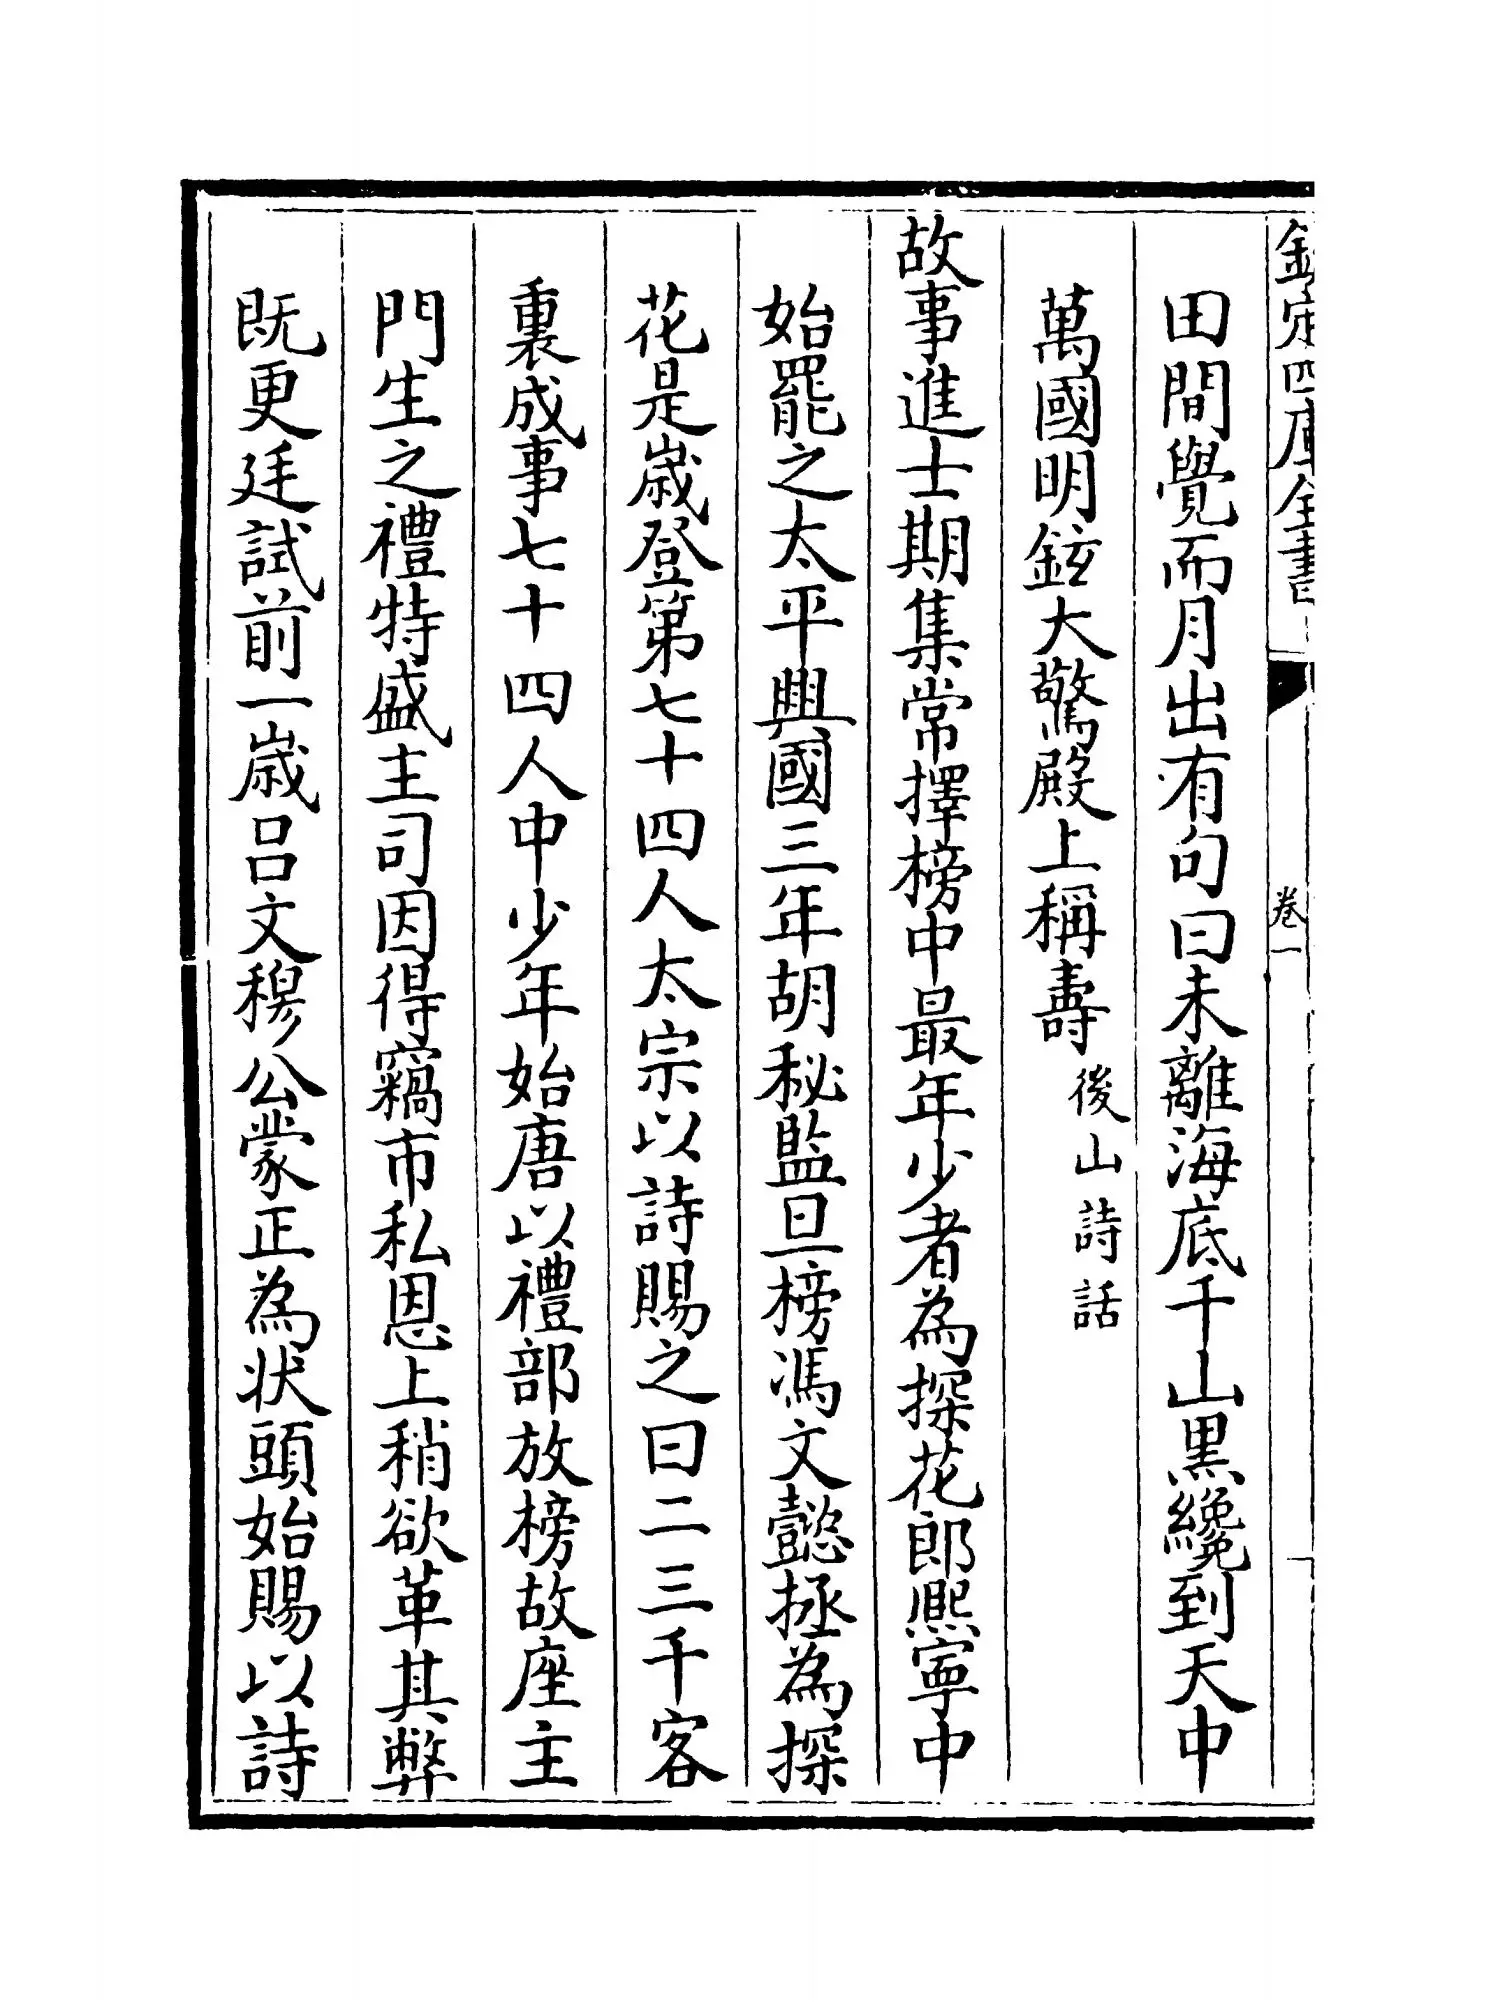 欽定四庫全書
卷一
田間覺而月出有句曰未離海底千山黒纔到天中
萬國明鉉大驚殿上稱壽後山詩話
故事進士期集常擇榜中最年少者為探花郎熈寧中
始罷之太平興國三年胡秘監旦榜馮文懿拯為探
花是嵗登第七十四人太宗以詩賜之曰二三千客
裏成事七十四人中少年始唐以禮部放榜故座主
門生之禮特盛主司因得竊市私恩上稍欲革其弊
既更廷試前一嵗吕文穆公蒙正為状頭始賜以詩